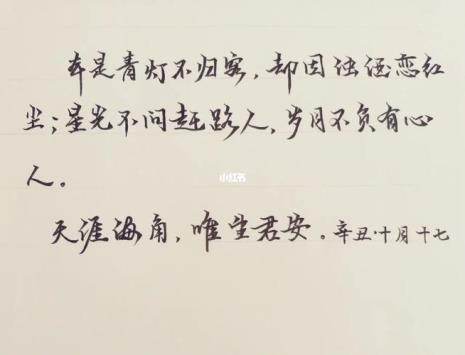 本是青灯不归客,却因浊酒恋红
尘;星光不问赶路人,岁月不负有心
人。
小红书
天涯海角,唯望君安。辛丑·十月十七